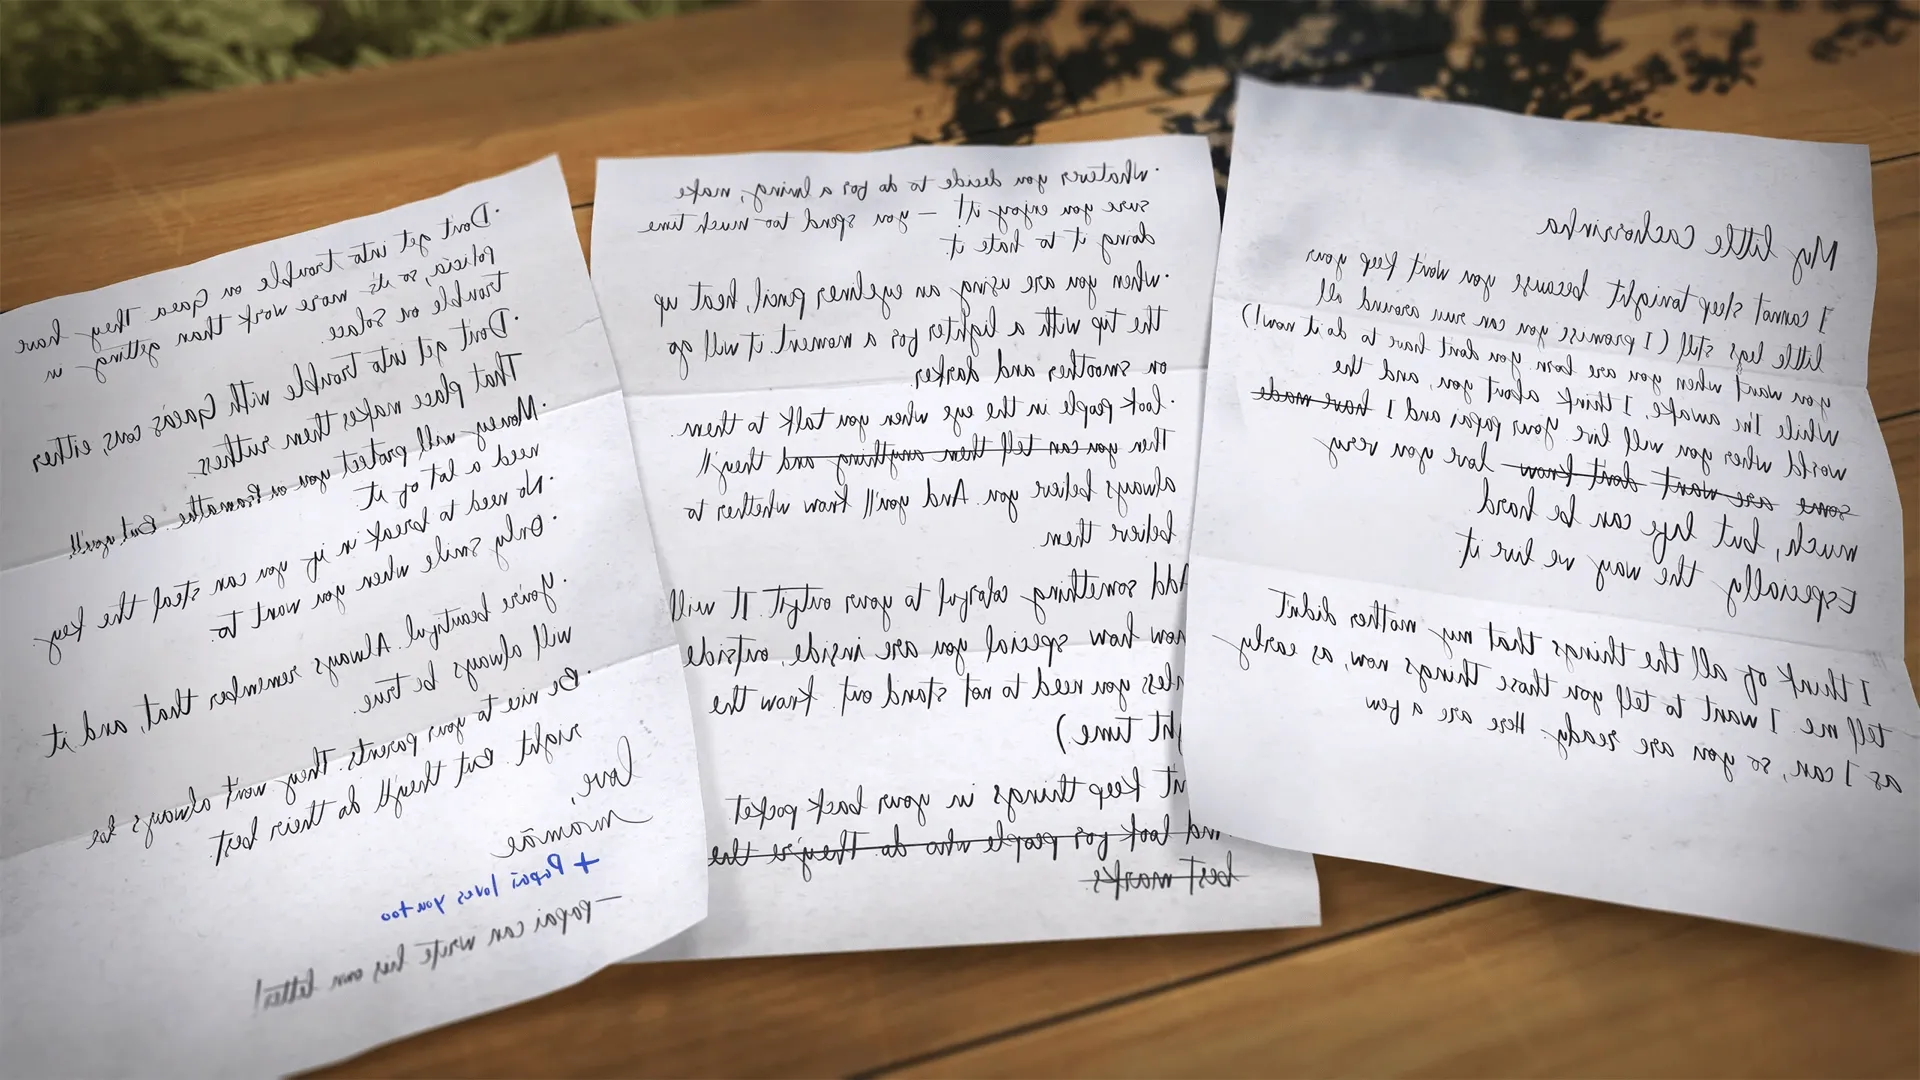 My little Cachorrinha
I cannot sleep tonight because you won't keep your
little legs still (I promise you can run around all
you want when you are born you don't have to do it now!)
While I'm awake, I think about you, and the
world where you will live. Your papai and I have made
some are want don't know love you very
much, but life can be hard.
Especially the way we live it
I think of all the things that my mother didn't
tell me. I want to tell you those things now, as early
as I can, so you are ready. Here are a few
·Whatever you decide to do for a living, make
sure you enjoy it! – you spend too much time
doing it to hate it
·When you are using an eyeliner pencil, heat up
the tip with a lighter for a moment. it will go
on smoother and darker.
·look people in the eye when you talk to them.
Then you can tell them anything and they'll
always believe you. And you'll know whether to
believe them.
Add something colorful to your outfit. It will
how special you are inside, outside
you need to not stand out. know the
time.)
keep things in your back pocket
look for people who do. They're the
best marks.
·Don't get into trouble on Gaea. They have
policia, so it's more work than getting in
trouble on Solace.
·Don't get into trouble with Gaea's cons, either
That place makes them ruthless.
·Money will protect you on Promathe. But you'll
need a lot of it.
·No need to break in if you can steal the key
·Only smile when you want to.
·You're beautiful. Always remember that, and it
will always be true.
·Be nice to your parents. They won't always be
right. But they'll do their best.
love,
mamãe
+ Papai loves you too
– papai can write his own letter!